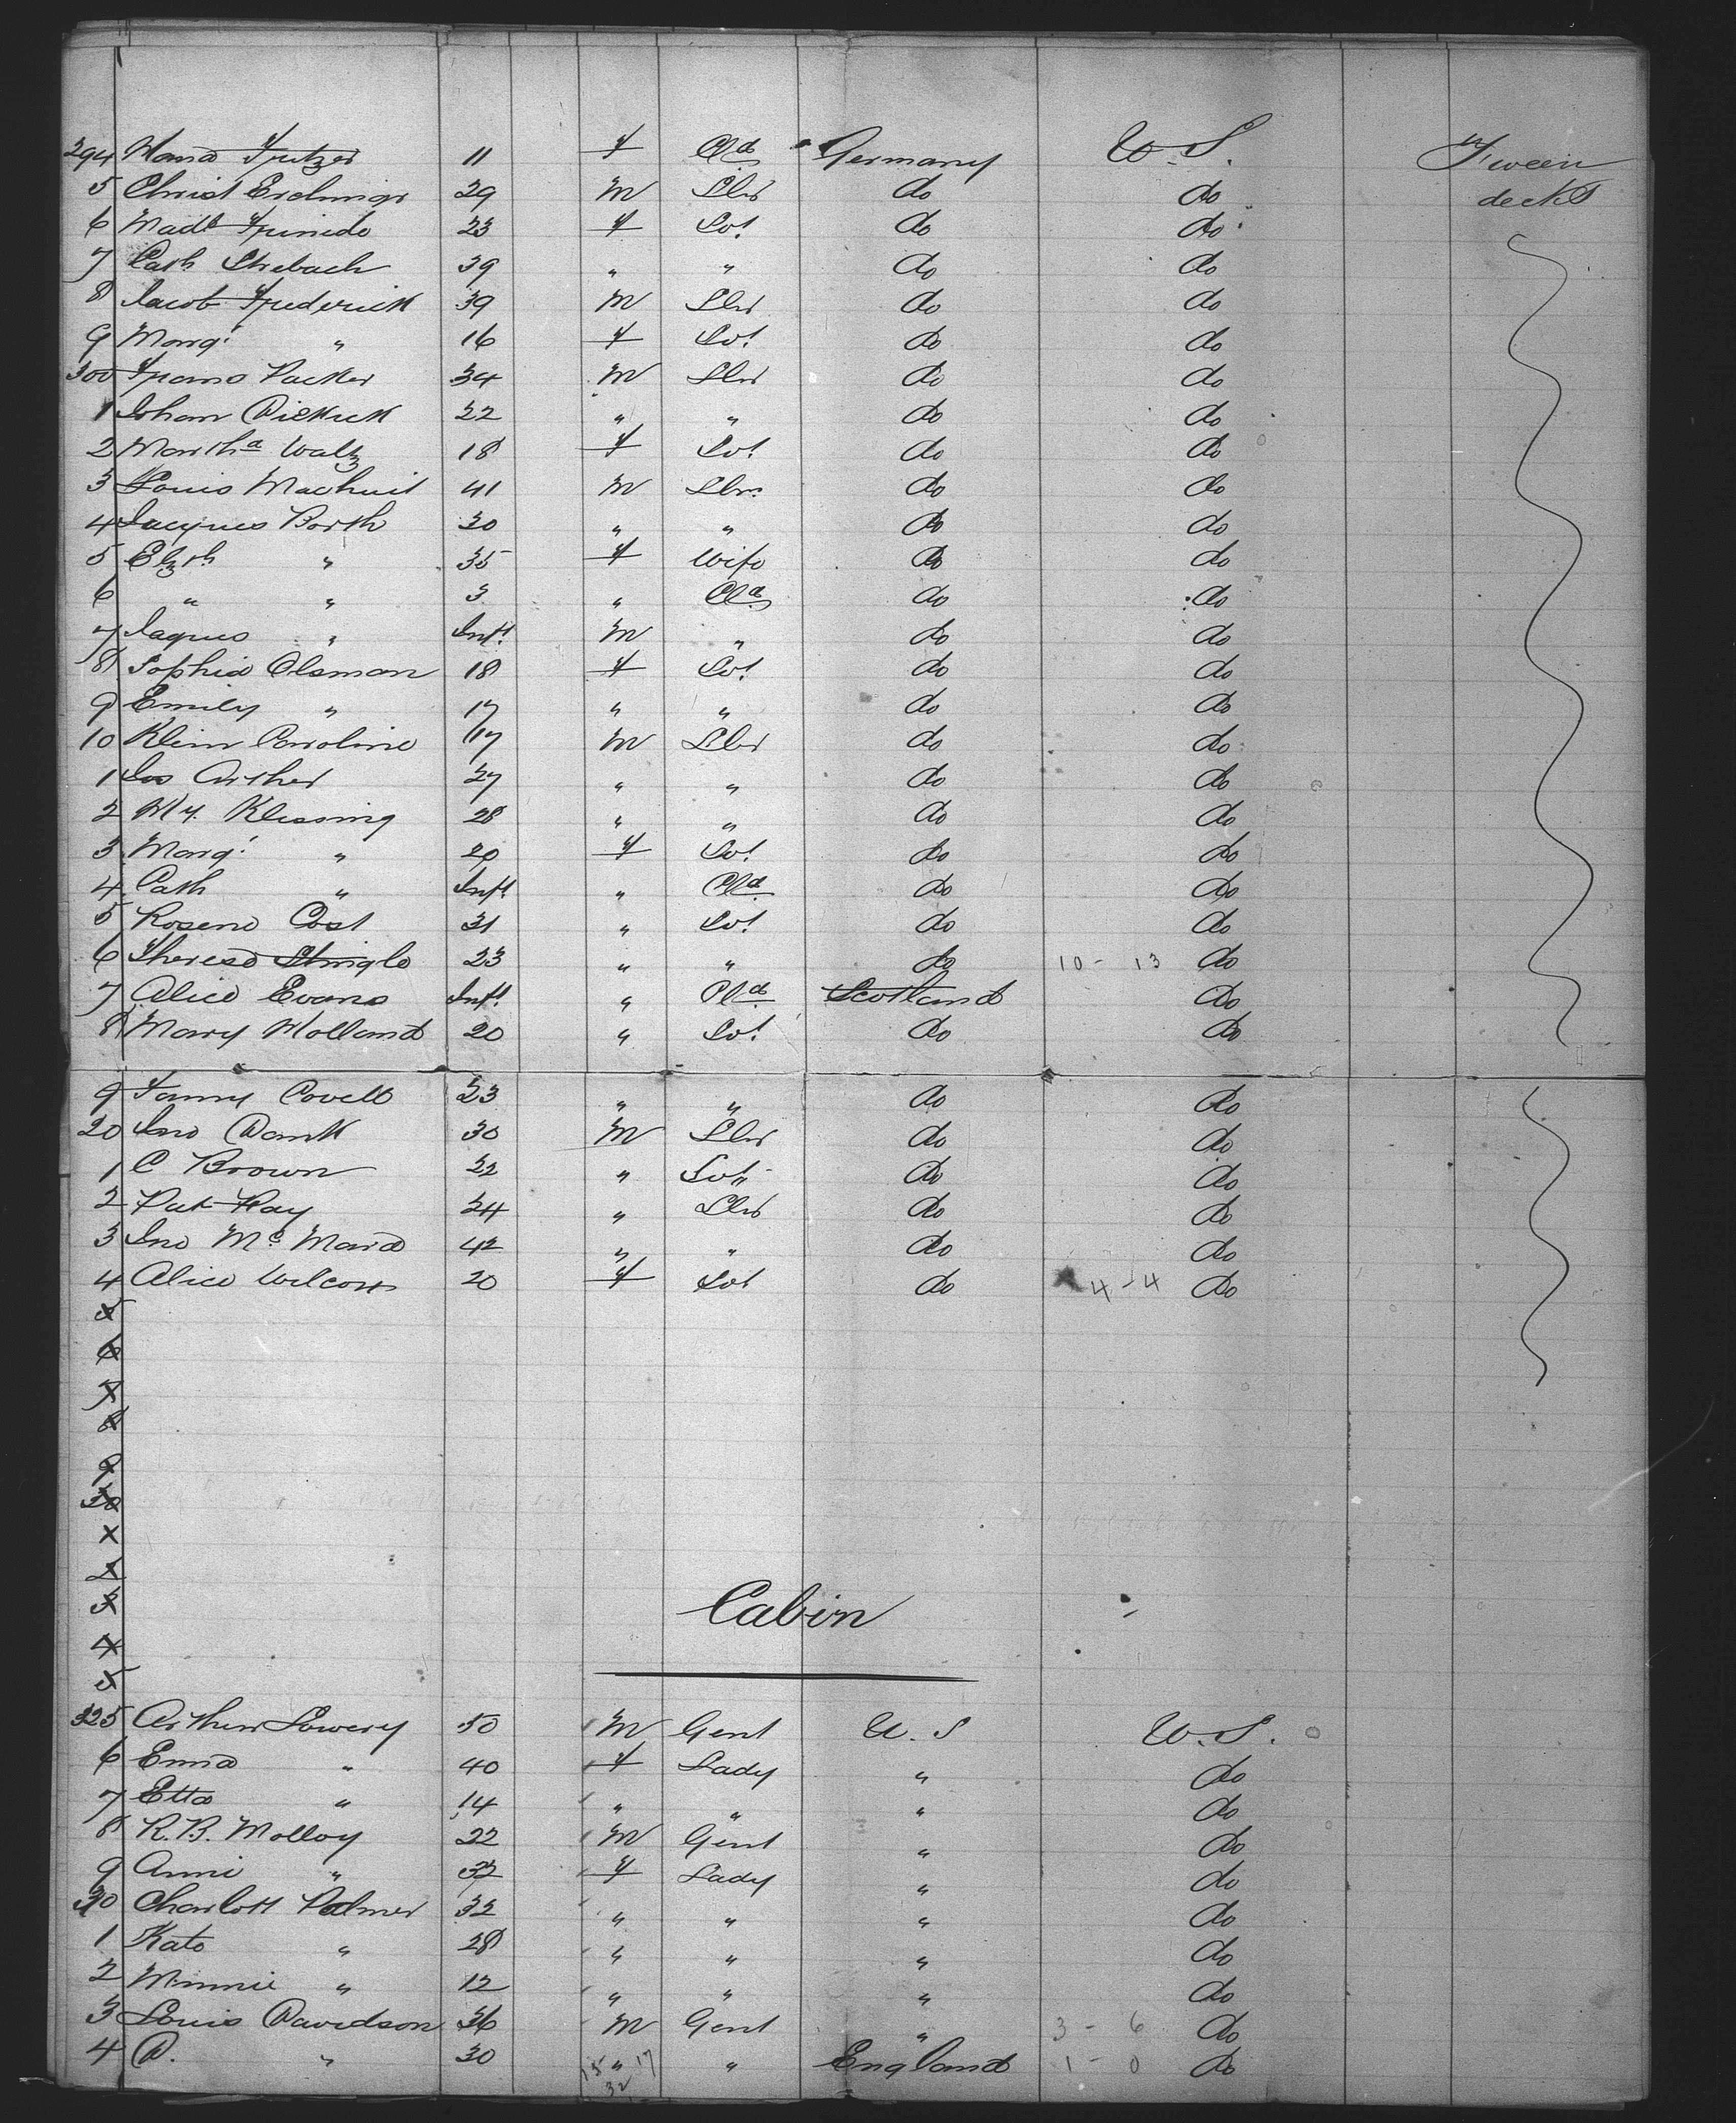 294 Maria Fritzer 11 f Cld Germany U.S. 'Tween
5 Christ Erdminger 29 M Lbr do do decks
6 Madl 23 f Svt do do
7 Cath Strebach 39 " " do do
8 Jacob Frederick 39 M Lbr do do
9 Margt " 16 f Svt do do
300 Franz Packer 34 M Lbr do do
1 Johan 22 " " do do
2 Martha Waltz 18 f Svt do do
3 Louis 41 M Lbr do do
4 Jacques Barth 30 " " do do
5 Elzth " 35 f Wife do do
6 " " 3 " Cld do do
7 Jaques " Inft M " do do
8 Sophia Olsman 18 f Svt do do
9 Emily " 17 " " do do
10 Klein Caroline 17 M Lbr do do
1 Jos Arther 27 " " do do
2 Hy. Klessing 28 " " do do
3 Margt " 20 f Svt do do
4 Cath " Inft " Cld do do
5 Rosene Oost 31 " Svt do do
6 Theresa Stingle 23 " " do 10 - 13 do
7 Alice Evans Inft " Cld Scotland do
8 Mary Holland 20 " Svt do do
9 Fanny Covell 23 " " do do
20 Jno Dank 30 M Lbr do do
1 C Brown 22 " Svt do do
2 Pat Hay 24 " Lbr do do
3 Jno Mc Mara 42 " " do do
4 Alice Wilcox 20 f Svt do 4 - 4 do
5
6
7
8
9
30
x
2
3 Cabin
4
5
325 Arthur Lowery 50 M Gent U.S U.S.
6 Emma " 40 f Lady " do
7 Etta " 14 " " " do
8 R.B. Molloy 22 M Gent " do
9 Anni " 32 f Lady " do
30 Charlott Palmer 32 " " " do
1 Kate " 28 " " " do
2 Minnie " 12 " " " do
3 Louis Davidson 36 M Gent " 3 - 6 do
4 D. " 30 " " England 1 - 0 do
15 17
32